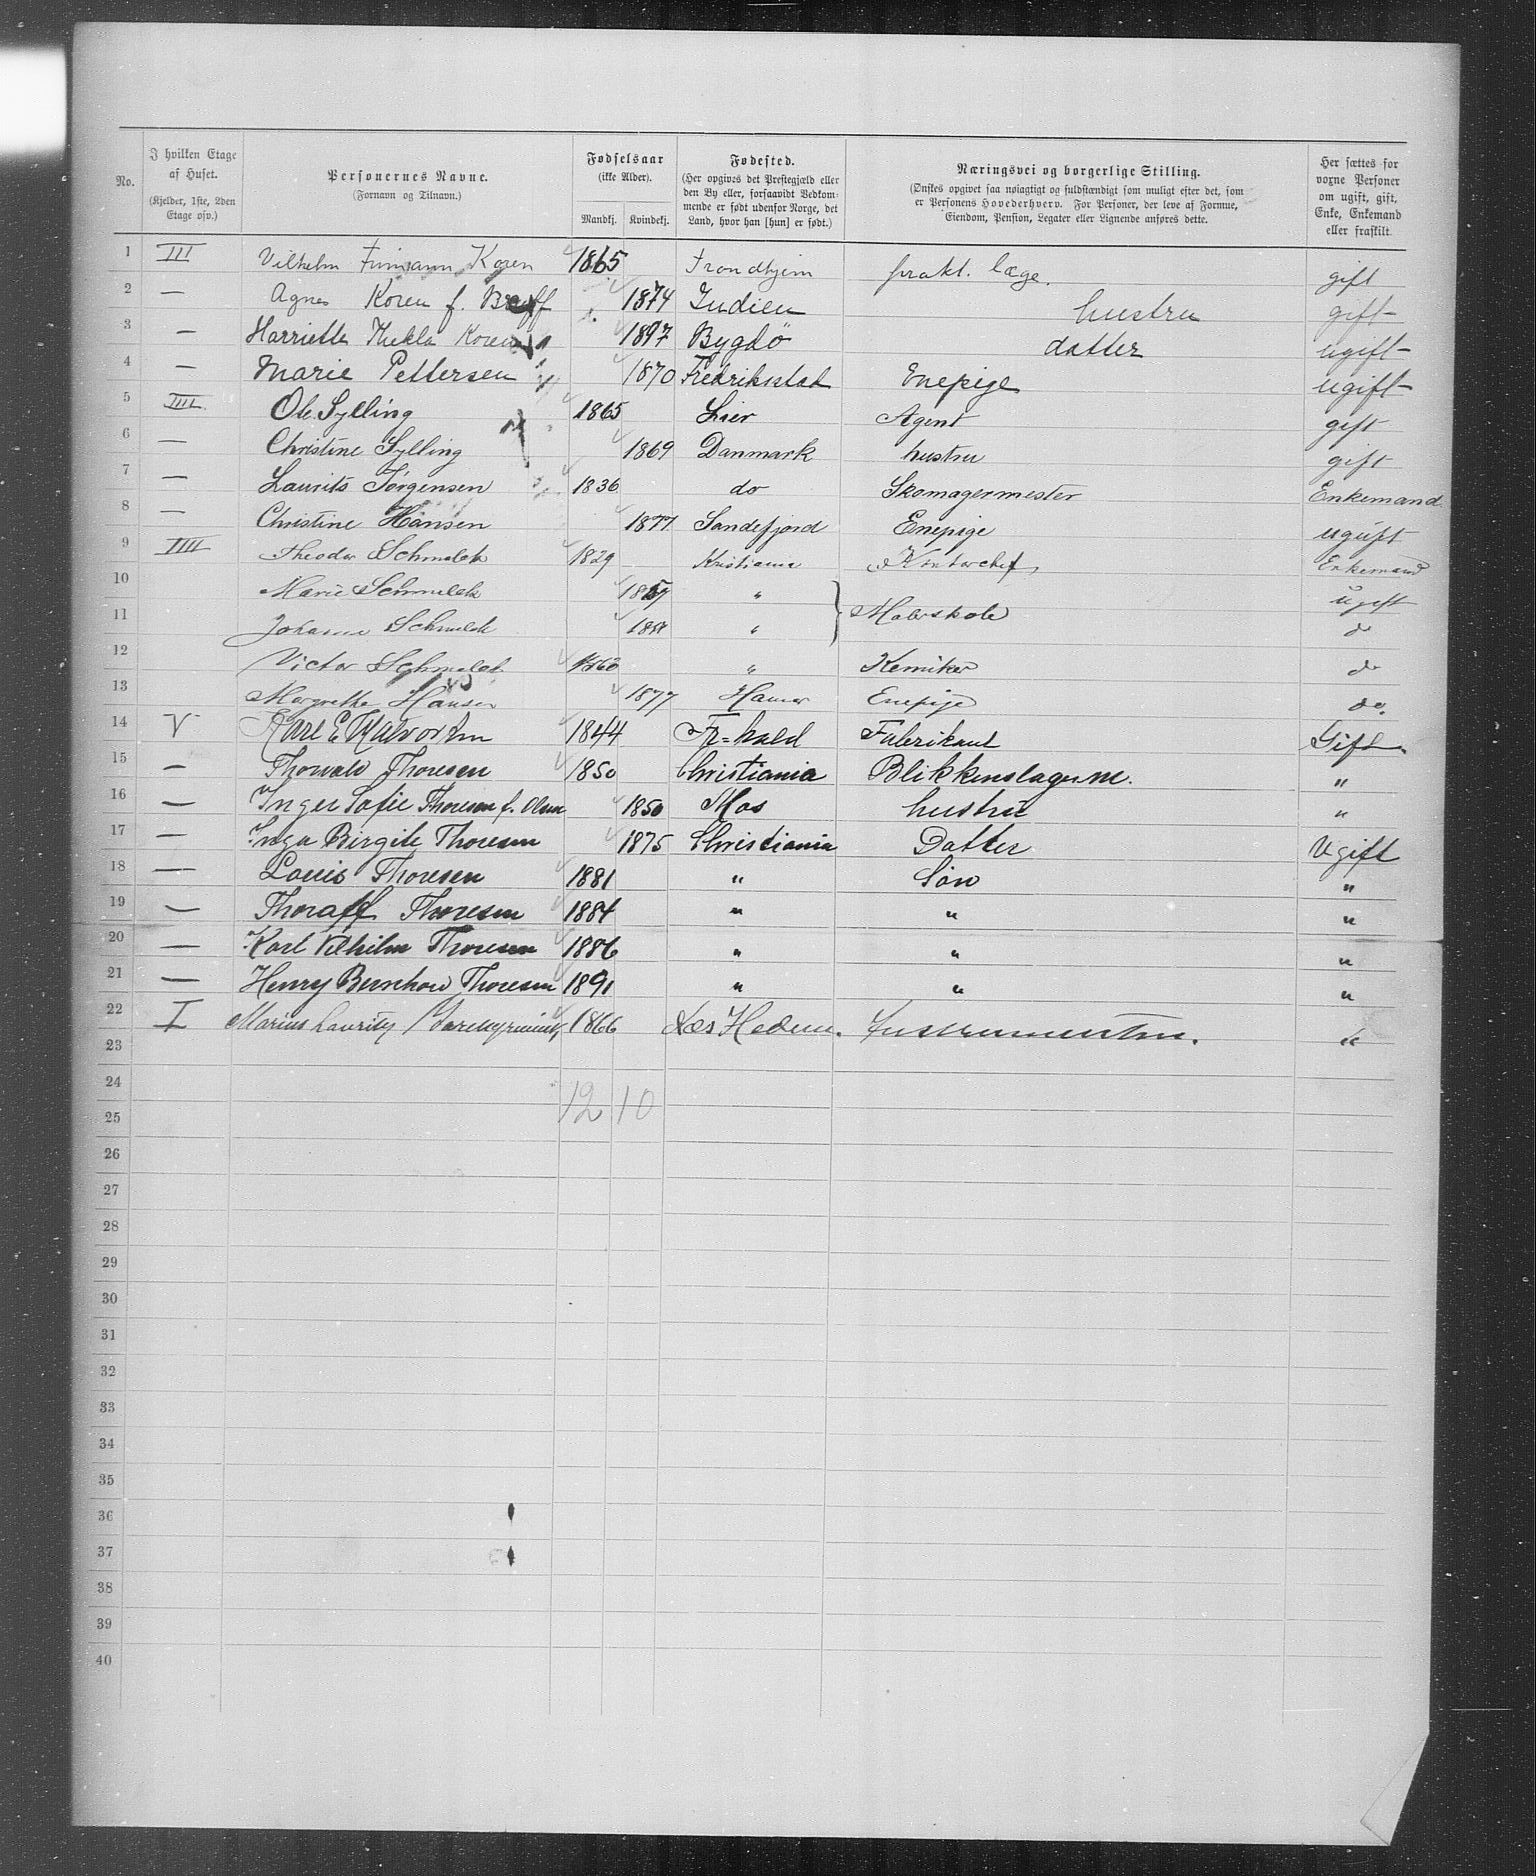 No. | I hvilken Etage af Huset. (Kjelder, 1ste, 2den Etage osv.) | Personernes Navne. (Fornavn og Tilnavn.) | Fødselsaar (ikke Alder). Mandkj. Kvindekj. | Fødested. (Her opgives det Prestegjæld eller den By eller, forsaavidt Vedkommende er født udenfor Norge, det Land, hvor han [hun] er født.) | Næringsvei og borgerlige Stilling. (Ønskes opgivet saa nøiagtigt og fuldstændigt som muligt efter det, som er Personens Hovederhverv. For Personer, der leve af Formue, Eiendom, Pension, Legater eller Lignende anføres dette. | Her sættes for voxne Personer om ugift, gift, Enke, Enkemand eller fraskilt.
1 III Vilhelm Koren 1865 Trondhjem prakt. læge. gift
2 — Agnes Koren f. 1874 Indien hustru gift
3 — Harriette Thekla Koren 1897 Bygdö datter ugift
4 — Marie Pettersen 1870 Fredriksstad Enepige ugift
5 IIII. Ole Sylling 1865 Lier Agent gift
6 — Christine Sylling 1869 Danmark hustru gift
7 — Laurits Jørgensen 1836 do Skomagermester Enkemand
8 — Christine Hansen 1877 Sandefjord Enepige ugift
9 IIII Theodor Schmelck 1829 Kristiania Kontorchef, Enkemand
10 Marie Schmelck " } Malerskole ugift
11 Johanne Schmelck " do
12 Victor Schmelck 1860 " Kemiker do
13 Margrethe Hansen 1877 Hamar Enepige do.
14 V Karl E 1844 Fr=hald Fabrikant Gift.
15 — Thorvald Thoresen 1850 Christiania Blikkenslagerm. "
16 — Inger Sofie Thoresen f. Olsen 1850 Mos hustru "
17 — Inga Birgite Thoresen 1875 Christiania Datter Ugift
18 — Louis Thoresen 1881 " Søn "
19 — Thoralf Thoresen 1884 " " "
20 — Karl Vilhilm Thoresen 1886 " " "
21 — Henry Bernhard Thoresen 1891 " " "
22 I Marius Lauritz 1866 Næs Hedem. Instrumentm. "
23
24
12 10
25
26
27
28
29
30
31
32
33
34
35
36
37
38
39
40